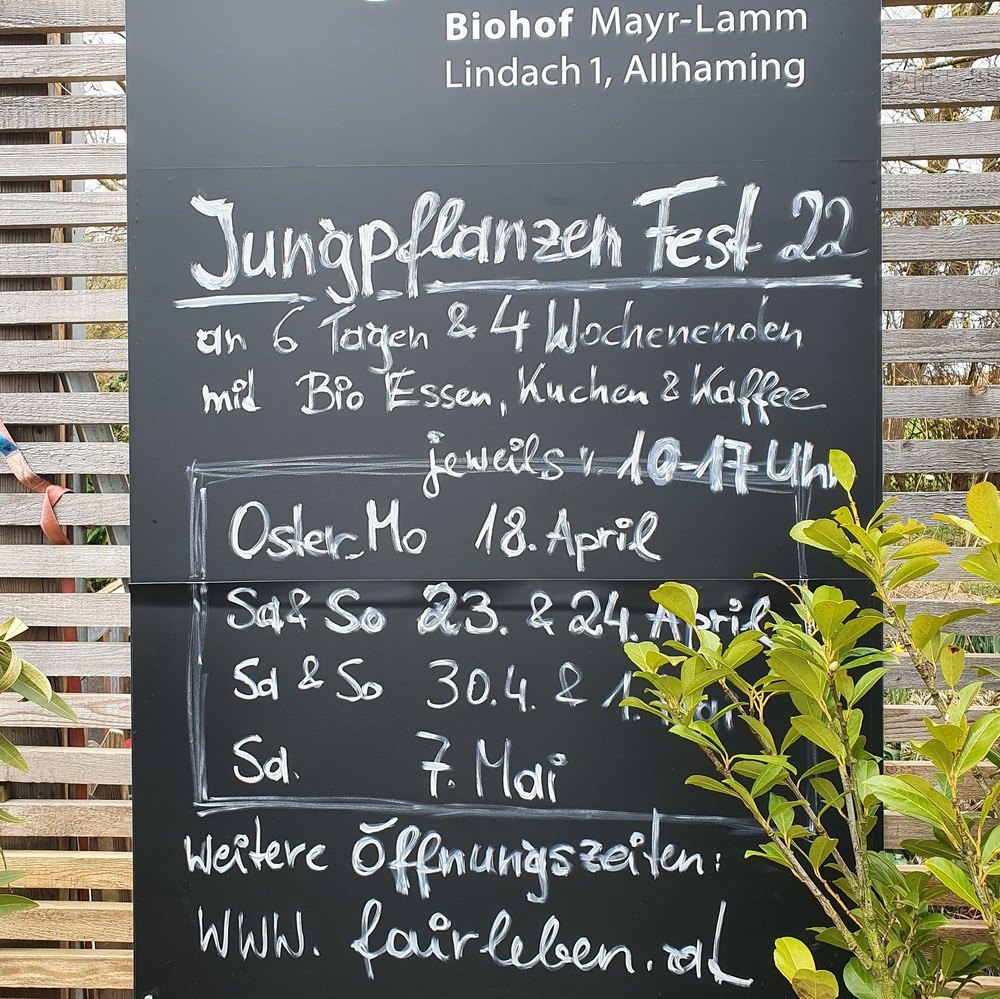 Biohof Mayr-Lamm
Lindach 1, Allhaming
Jungpflanzen Fest 22
an 6 Tagen & 4 Wochenenden
mit Bio Essen, Kuchen & Kaffee
jeweils v. 10-17 Uhr
Oster-Mo 18. April
Sa & So 23. & 24. April
Sa & So 30.4. & 1. Mai
Sa. 7. Mai
weitere Öffnungszeiten:
www.fairleben.at